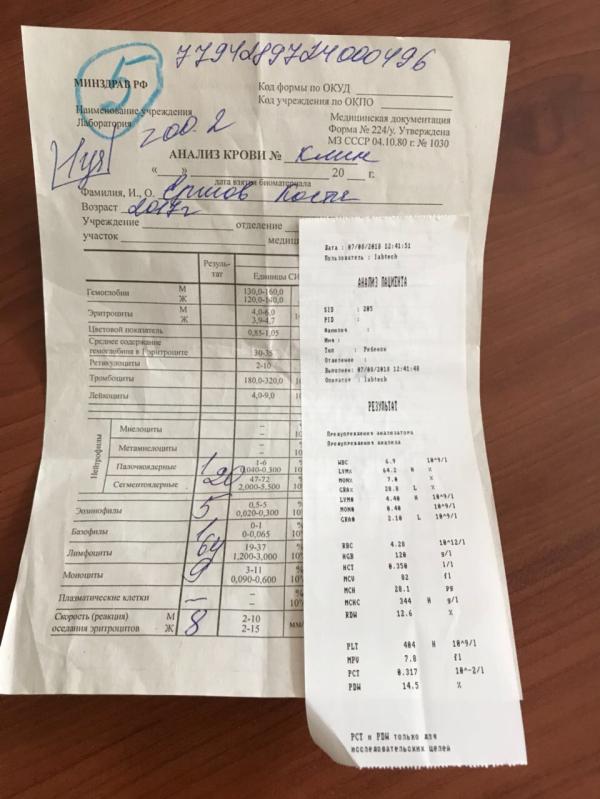 7794289724000496
5
МИНЗДРАВ РФ
Код формы по ОКУД
Код учреждения по ОКПО
Наименование учреждения
Лаборатория
Медицинская документация
Форма № 224/у, Утверждена
МЗ СССР 04.10.80 г. № 1030
АНАЛИЗ КРОВИ № клин
« » 20 г.
дата взятия биоматериала
Фамилия, И., О. Ершов Костя
Возраст 2017г
Учреждение отделение
участок медиц
Резуль-
тат
Единицы СИ
Гемоглобин М 130,0-160,0
Ж 120,0-140,0
Эритроциты М 4,0-6,0
Ж 3,9-4,7
Цветовой показатель 0,85-1,05
Среднее содержание
гемоглобина в 1 эритроците 30-35
Ретикулоциты 2-10
Тромбоциты 180,0-320,0
Лейкоциты 4,0-9,0
Нейтрофилы
Миелоциты –
Метамиелоциты –
Палочкоядерные 1 1-6
0,040-0,300
Сегментоядерные 20 47-72
2,000-5,500
Эозинофилы 5 0,5-5
0,020-0,300
Базофилы 1 0-1
0-0,065
Лимфоциты 64 19-37
1,200-3,000
Моноциты 9 3-11
0,090-0,600
Плазматические клетки — –
Скорость (реакция) М 2-10
оседания эритроцитов Ж 8 2-15 мм/
Дата : 07/08/2018 12:41:51
Пользователь : labtech
АНАЛИЗ ПАЦИЕНТА
SID : 205
PID :
Фамилия :
Имя :
Тип : Ребенок
Отделение :
Выполнен: 07/08/2018 12:41:48
Оператор : labtech
РЕЗУЛЬТАТ
Предупреждения анализатора
Предупреждения анализа
WBC 6.9 10^9/l
LYM% 64.2 H %
MON% 7.0 %
GRA% 28.8 L %
LYM# 4.40 H 10^9/l
MON# 0.40 10^9/l
GRA# 2.10 L 10^9/l
RBC 4.28 10^12/l
HGB 120 g/l
HCT 0.350 l/l
MCV 82 fl
MCH 28.1 pg
MCHC 344 H g/l
RDW 12.6 %
PLT 404 H 10^9/l
MPV 7.8 fl
PCT 0.317 10^-2/l
PDW 14.5 %
PCT и PDW только для
исследовательских целей